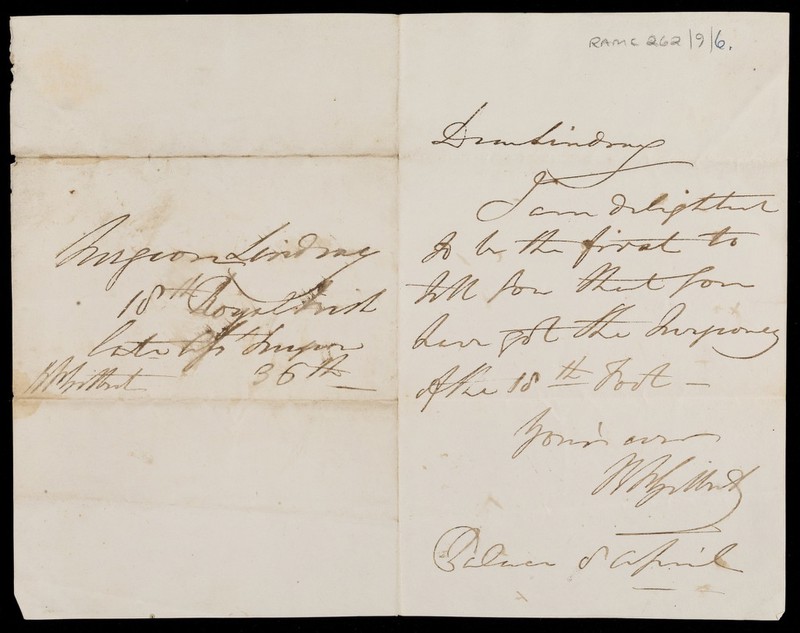 Surgeon Lindsay
18th Royal Irish
late Asst Surgeon
36th
RAMC 262/9/6.
Dear Lindsay
I am delighted
to be the first to
tell you that you
have got the Surgeoncy
of the 18th Foot —
Yours ever
Palace 8 April